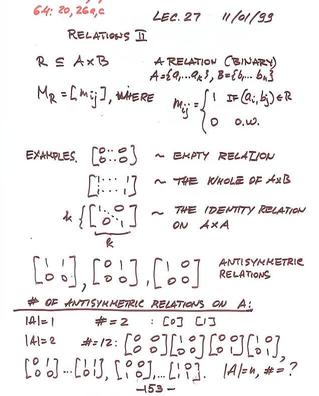 64: 20, 26a,c
LEC. 27 11/01/99
RELATIONS II
R ⊆ A×B A RELATION (BINARY)
A={a₁...aₖ}, B={b₁...bₙ}
M_R = [mᵢⱼ], WHERE mᵢⱼ = { 1 IF (aᵢ,bⱼ)∈R
0 O.W.
EXAMPLES. [0...0 0...0] ~ EMPTY RELATION
[1...1 1...1] ~ THE WHOLE OF A×B
k { [1 0 0 1] ~ THE IDENTITY RELATION
k ON A×A
[1 1 0 0], [0 1 0 0], [1 0 0 0] ANTISYMMETRIC
RELATIONS
# OF ANTISYMMETRIC RELATIONS ON A:
|A|=1 # = 2 : [0] [1]
|A|=2 #=12: [0 0 0 0] [1 0 0 0] [0 0 0 1] [1 0 0 1],
[0 1 0 0]...[1 1 0 1], [0 0 1 0],...[1 0 1 1]. |A|=n, #= ?
-153-